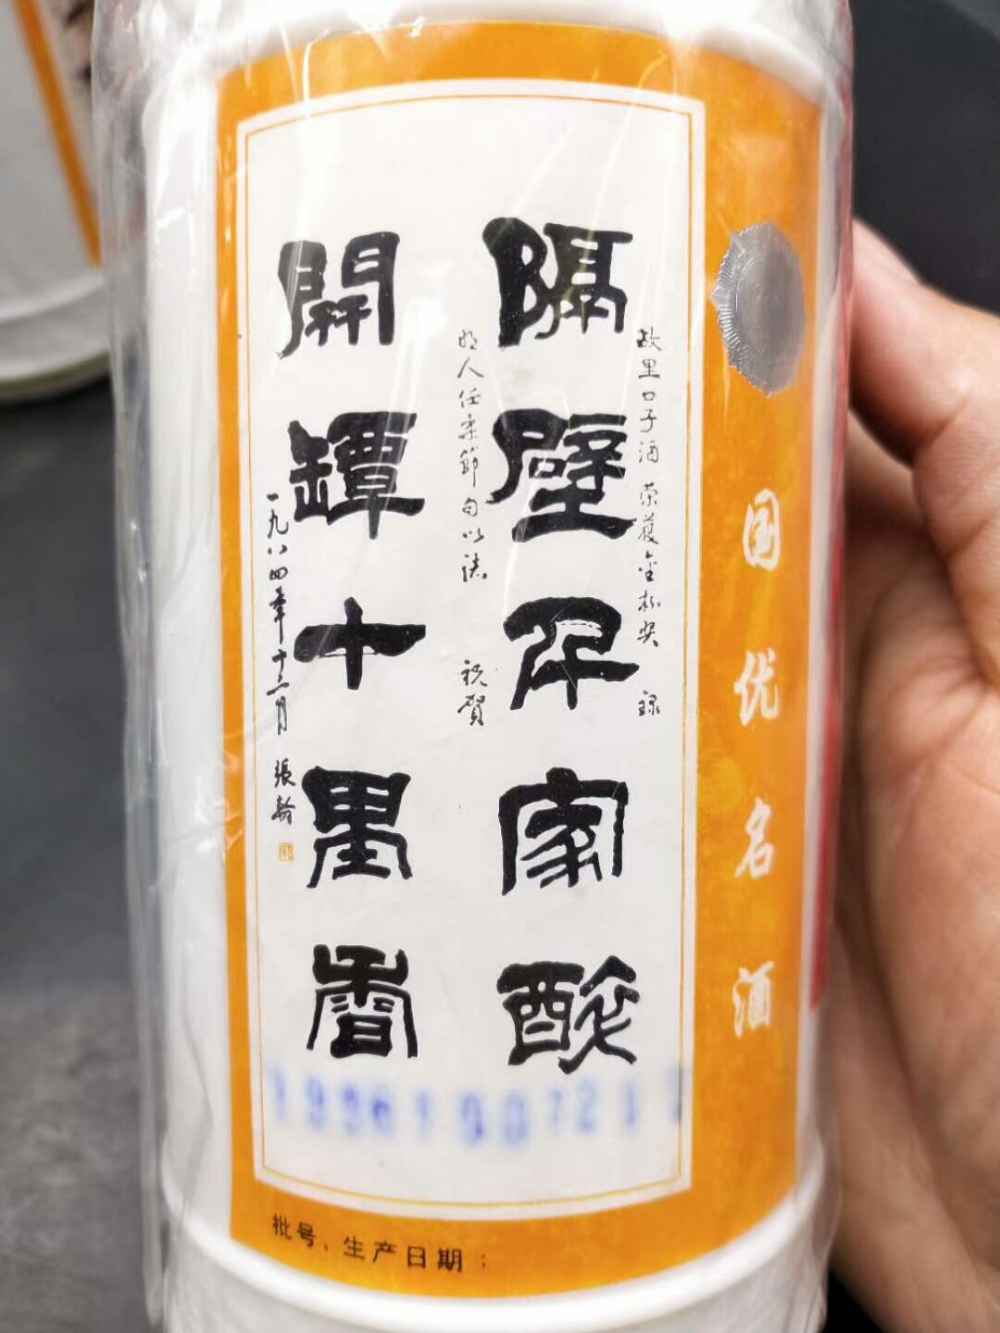 国优名酒
故里口子酒 荣获金杯奖 録
隔壁千家醉
明人任柔節句以誌 祝賀
開罈十里香
一九八四年十二月 張翰
批号、生产日期：